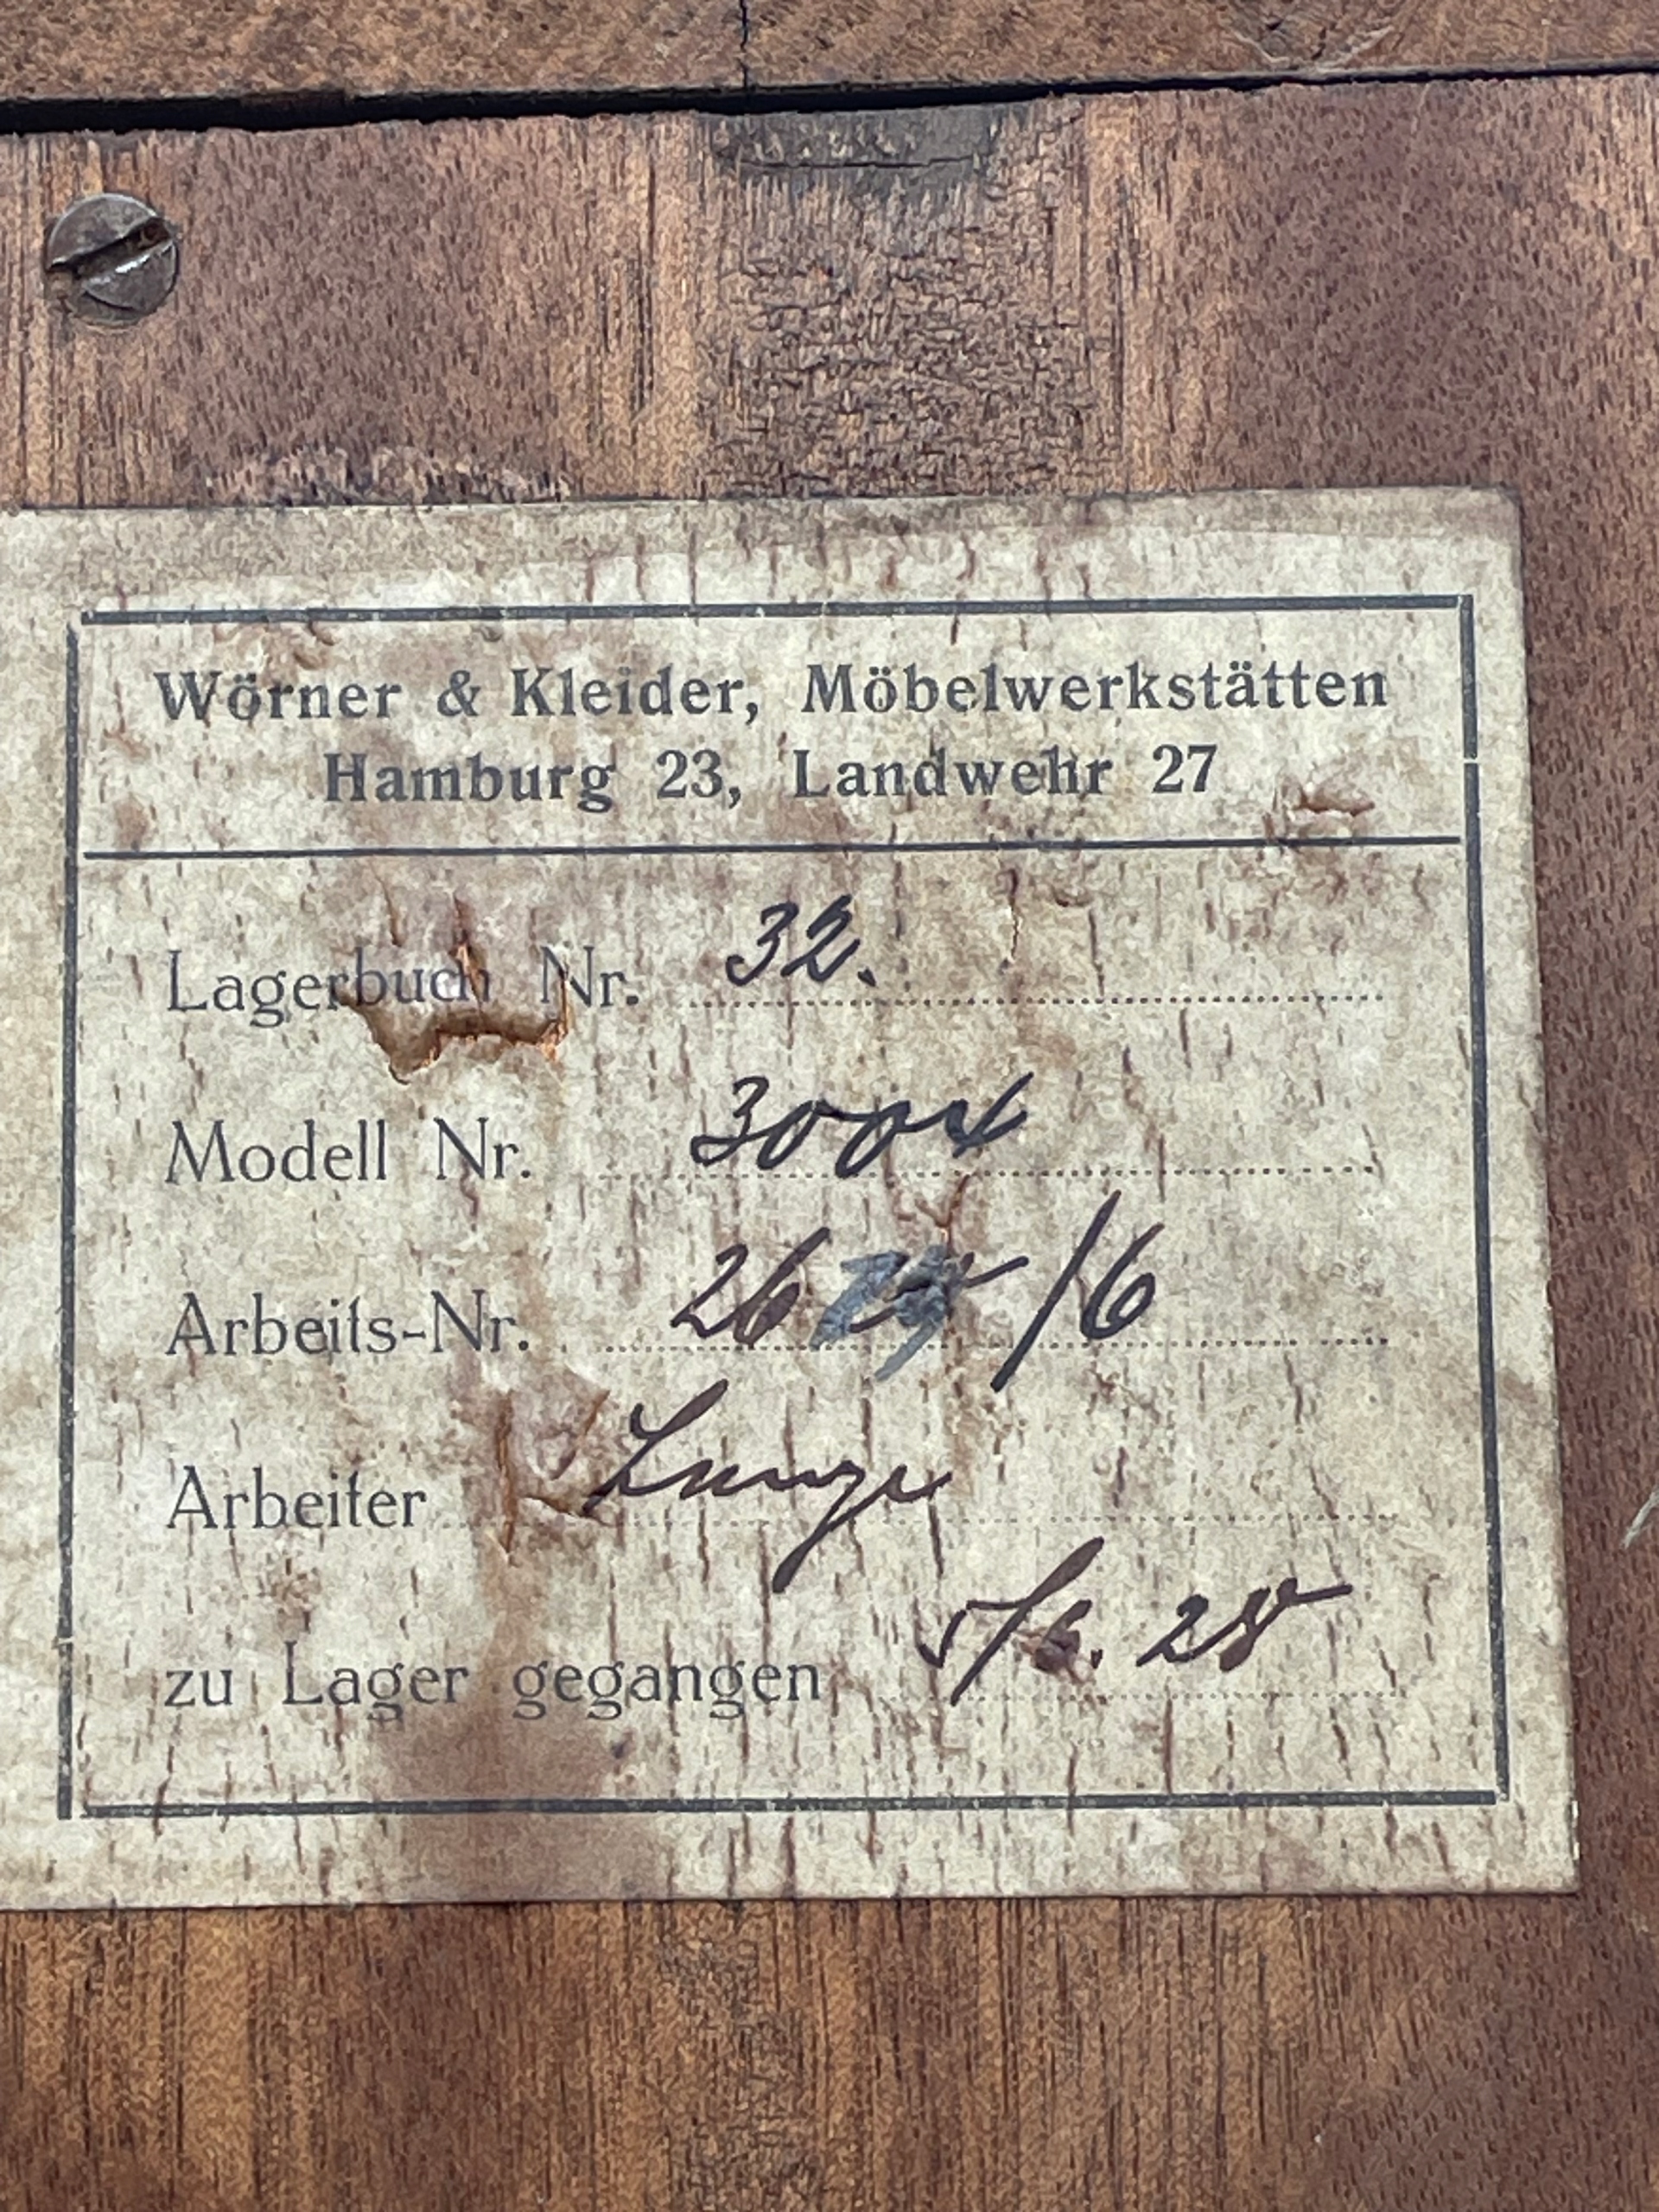 Wörner & Kleider, Möbelwerkstätten
Hamburg 23, Landwehr 27
Lagerbuch Nr. 32.
Modell Nr. 3004
Arbeits-Nr. 26 /6
Arbeiter Lange
zu Lager gegangen 5/6. 28